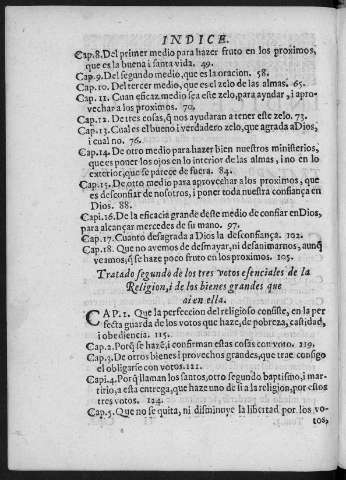 INDICE.
Cap.8. Del primer medio para hazer fruto en los proximos,
que es la buena i santa vida. 49.
Cap.9. Del segundo medio, que es la oracion. 58.
Cap.10. Del tercer medio, que es el zelo de las almas. 65.
Cap.11. Cuan eficaz medio sea este zelo, para ayudar, i apro-
vechar a los proximos. 70.
Cap.12. De tres cosas, q̃ nos ayudaran a tener este zelo. 73.
Cap.13. Cual es el bueno i verdadero zelo, que agrada a Dios,
i cual no. 76.
Cap.14. De otro medio para hazer bien nuestros ministerios,
que es poner los ojos en lo interior de las almas, i no en lo
exterior, que se parece de fuera. 84.
Cap.15. De otro medio para aprovechar a los proximos, que
es desconfiar de nosotros, i poner toda nuestra confiança en
Dios. 88.
Capi.16. De la eficacia grande deste medio de confiar en Dios,
para alcançar mercedes de su mano. 97.
Cap.17. Cuanto desagrada a Dios la desconfiança. 102.
Cap.18. Que no avemos de desmayar, ni desanimarnos, aunq̃
veamos, q̃ se haze poco fruto en los proximos. 105.
Tratado segundo de los tres votos esenciales de la
Religion, i de los bienes grandes que
ai en ella.
CAP.1. Que la perfeccion del religioso consiste, en la per
fecta guarda de los votos que haze, de pobreza, castidad,
i obediencia. 115.
Cap.2. Porq̃ se hazē, i confirman estas cosas con voto. 119.
Cap.3. De otros bienes i provechos grandes, que trae consigo
el obligarse con votos. 121.
Capi.4. Por q̃ llaman los santos, otro segundo baptismo, i mar-
tirio, a esta entrega, que haze uno de si a la religion, por estos
tres votos. 124.
Cap.5. Que no se quita, ni disminuye la libertad por los vo-
tos,